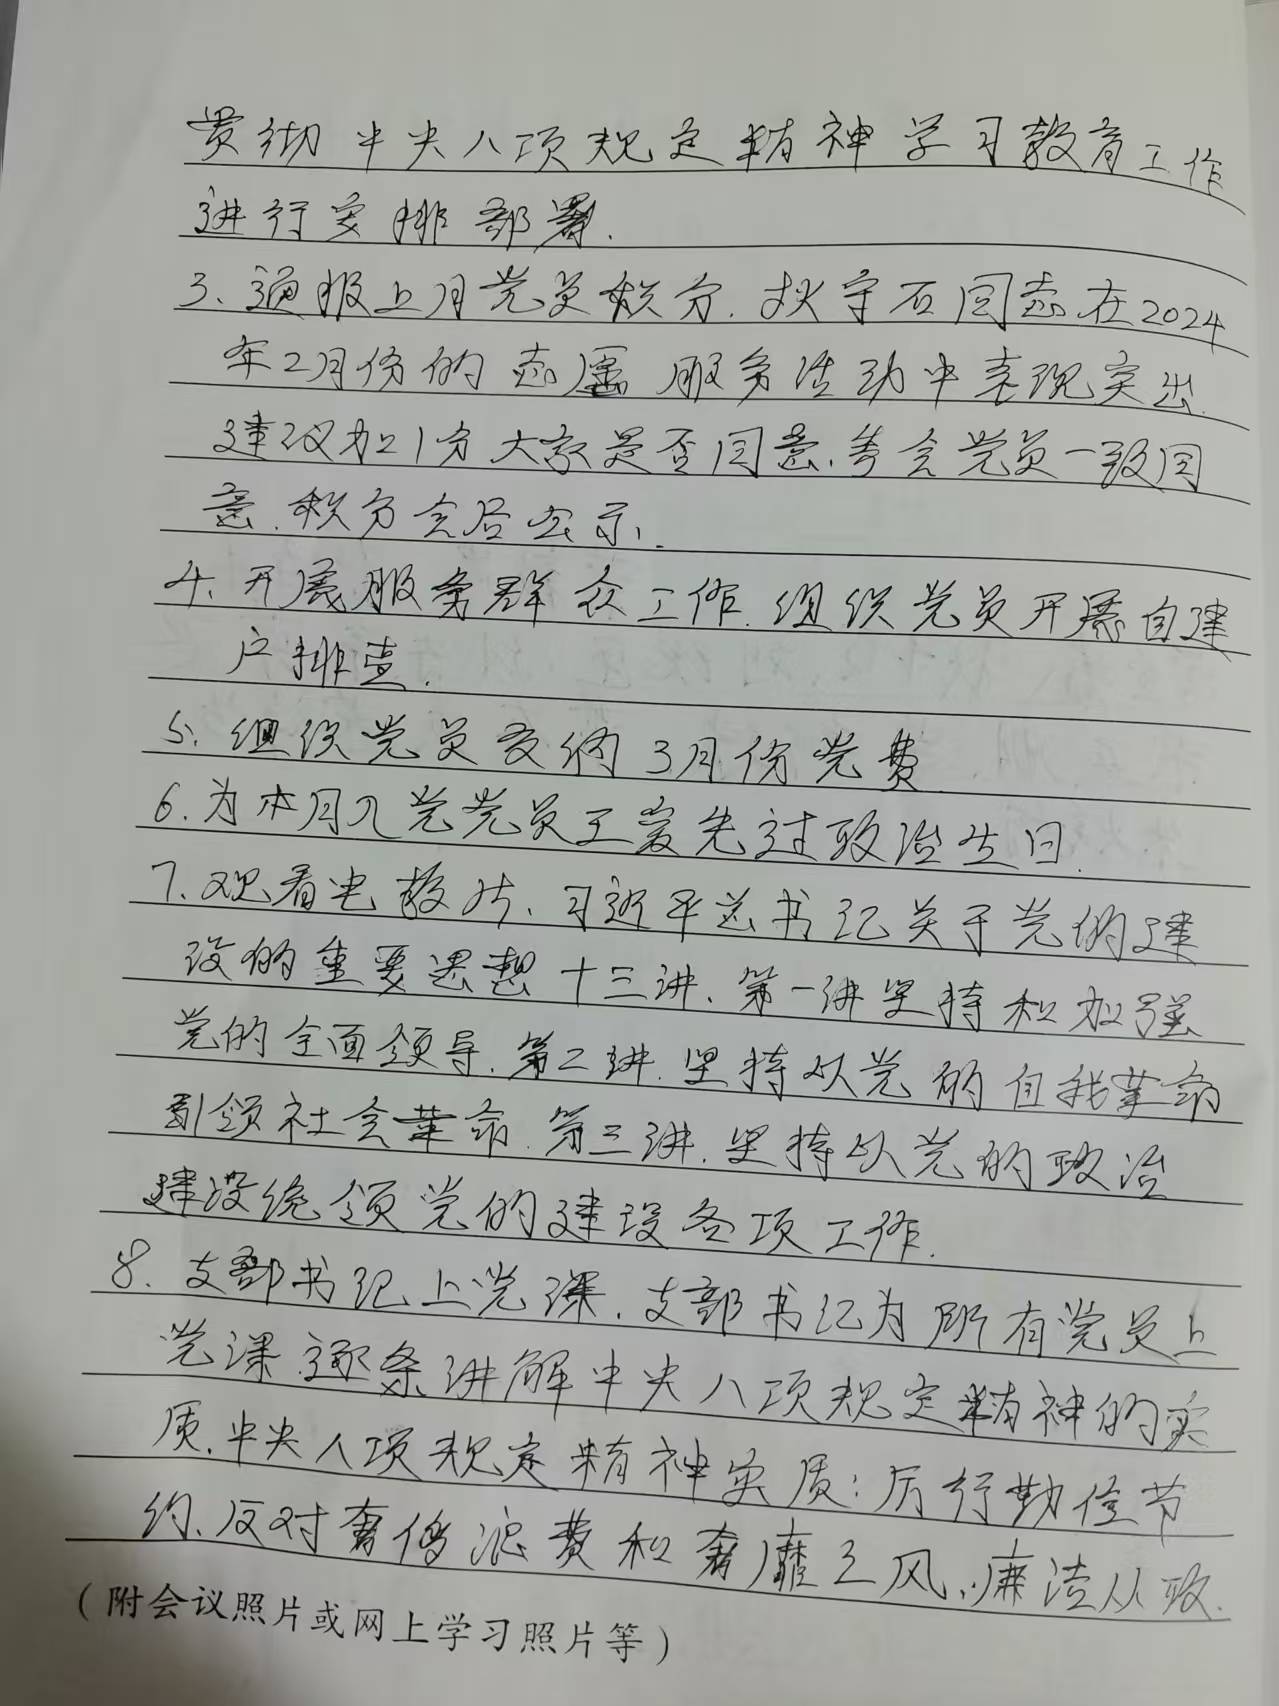 贯彻中央八项规定精神学习教育工作
进行安排部署.
3、通报上月党员积分.狄守石同志在2024
年2月份的志愿服务活动中表现突出.
建议加1分大家是否同意,参会党员一致同
意.积分会后公示.
4、开展服务群众工作.组织党员开展自建
户排查.
5、组织党员交纳3月份党费
6.为本月入党党员王爱先过政治生日.
7、观看电教片、习近平总书记关于党的建
设的重要思想十三讲、第一讲坚持和加强
党的全面领导.第二讲.坚持以党的自我革命
引领社会革命.第三讲.坚持以党的政治
建设统领党的建设各项工作.
8.支部书记上党课.支部书记为所有党员上
党课逐条讲解中央八项规定精神的实
质.中央八项规定精神实质:厉行勤俭节
约、反对奢侈浪费和奢靡之风,廉洁从政.
(附会议照片或网上学习照片等)